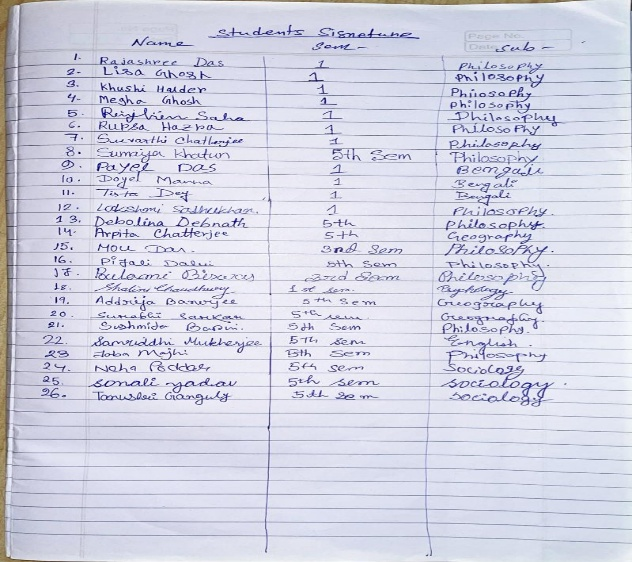 Students Signature
Name Sem- Sub-
Page No.
Date
1. Rajashree Das 1 Philosophy
2. Lisa Ghosh 1 Philosophy
3. Khushi Halder 1 Philosophy
4. Megha Ghosh 1 Philosophy
5. Saha 1 Philosophy
6. Rupsa Hazra 1 Philosophy
7. Chatterjee 1 Philosophy
8. Sumaiya Khatun 5th Sem Philosophy
9. Payel Das 1 Bengali
10. Doyel Manna 1 Bengali
11. Tista Dey 1 Bengali
12. Lakshmi Sadhukhan. 1 Philosophy.
13. Debolina Debnath 5th Philosophy.
14. Arpita Chatterjee 5th Geography
15. Mou Das. 3rd Sem Philosophy.
16. Pijali Dalui 5th Sem Philosophy.
17. 3rd Sem Philosophy
18. Shalini Chaudhury 1st sem. Psychology
19. Addrija Banerjee 5th Sem Geography
20. Surabhi Sarkar 5th sem Geography.
21. Sushmita 5th Sem Philosophy.
22. Samriddhi Mukherjee 5th sem English.
23 Joba Majhi 5th Sem Philosophy
24. Neha Poddar 5th sem Sociology
25. Sonali yadav 5th sem sociology.
26. Tanushri Ganguly 5th sem sociology